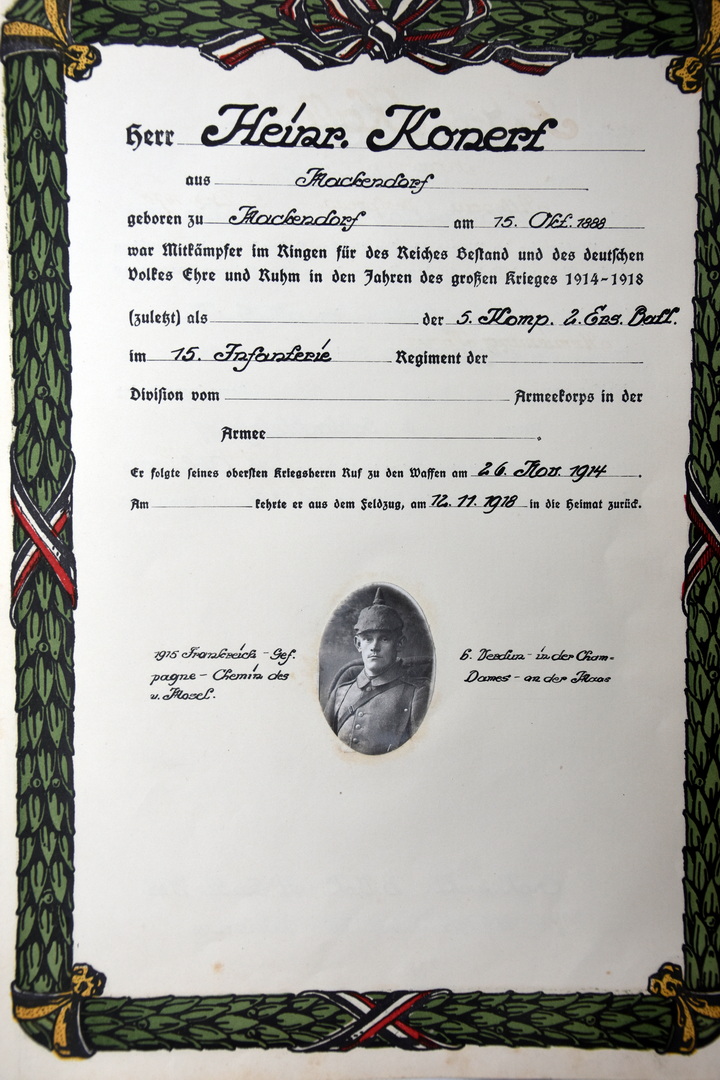 Herr Heinr. Konert
aus Mackendorf
geboren zu Mackendorf am 15. Okt. 1888
war Mitkämpfer im Ringen für des Reiches Bestand und des deutschen
Volkes Ehre und Ruhm in den Jahren des großen Krieges 1914-1918
(zuletzt) als der 5. Komp. 2. Ers. Batl.
im 15. Infanterie Regiment der
Division vom Armeekorps in der
Armee .
Er folgte seines obersten Kriegsherrn Ruf zu den Waffen am 26. Nov. 1914 .
Am kehrte er aus dem Feldzug, am 12. 11. 1918 in die Heimat zurück.
1915 Frankreich - Gef. b. Verdun - in der Cham-
pagne - Chemin des Dames - an der Maas
u. Mosel.